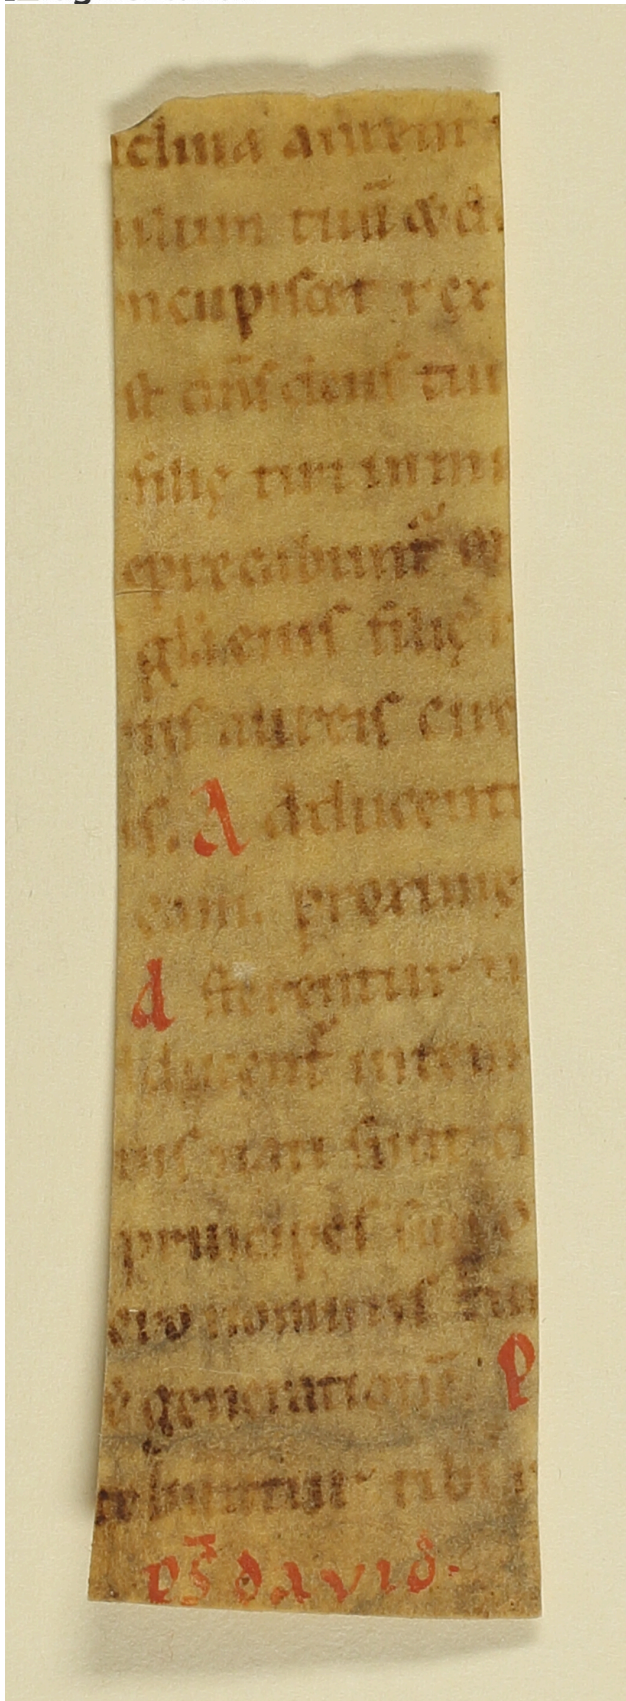 clina aurem
ulum tuū & d
ncupiscet rex
st dn̄s deus tuu
filię tiri in mu
epręcabunt̄ om
gl̄a eius filię r
iis aureis circ
is. A dducentu
eam. proximę
A fferentur
dducent̄ in tem
uis nati sunt ti
principes sup o
ero nominis tui
& generationē. P
ebuntur tibi in
ps̄ david.